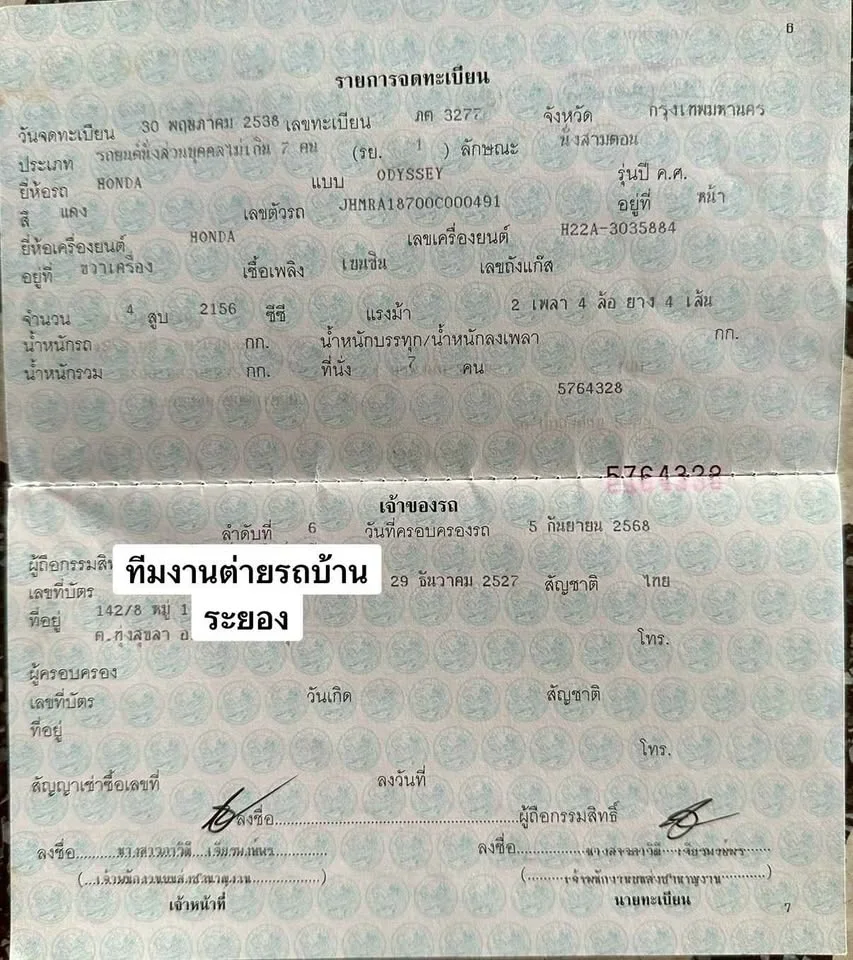 6
รายการจดทะเบียน
วันจดทะเบียน 30 พฤษภาคม 2538 เลขทะเบียน ภค 3277 จังหวัด กรุงเทพมหานคร
ประเภท รถยนต์นั่งส่วนบุคคลไม่เกิน 7 คน (รย. 1 ) ลักษณะ นั่งสามตอน
ยี่ห้อรถ HONDA แบบ ODYSSEY รุ่นปี ค.ศ.
สี แดง เลขตัวรถ JHMRA18700C000491 อยู่ที่ หน้า
ยี่ห้อเครื่องยนต์ HONDA เลขเครื่องยนต์ H22A-3035884
อยู่ที่ ขวาเครื่อง เชื้อเพลิง เบนซิน เลขถังแก๊ส
จำนวน 4 สูบ 2156 ซีซี แรงม้า 2 เพลา 4 ล้อ ยาง 4 เส้น
น้ำหนักรถ กก. น้ำหนักบรรทุก/น้ำหนักลงเพลา กก.
น้ำหนักรวม กก. ที่นั่ง 7 คน
5764328
5764328
เจ้าของรถ
ลำดับที่ 6 วันที่ครอบครองรถ 5 กันยายน 2568
ผู้ถือกรรมสิท
ทีมงานต่ายรถบ้าน
เลขที่บัตร 29 ธันวาคม 2527 สัญชาติ ไทย
ระยอง
ที่อยู่ 142/8 หมู่ 1
ต.ทุ่งสุขลา อ. โทร.
ผู้ครอบครอง
เลขที่บัตร วันเกิด สัญชาติ
ที่อยู่
โทร.
สัญญาเช่าซื้อเลขที่ ลงวันที่
ลงชื่อ ผู้ถือกรรมสิทธิ์
ลงชื่อ ลงชื่อ
เจ้าหน้าที่ นายทะเบียน
7